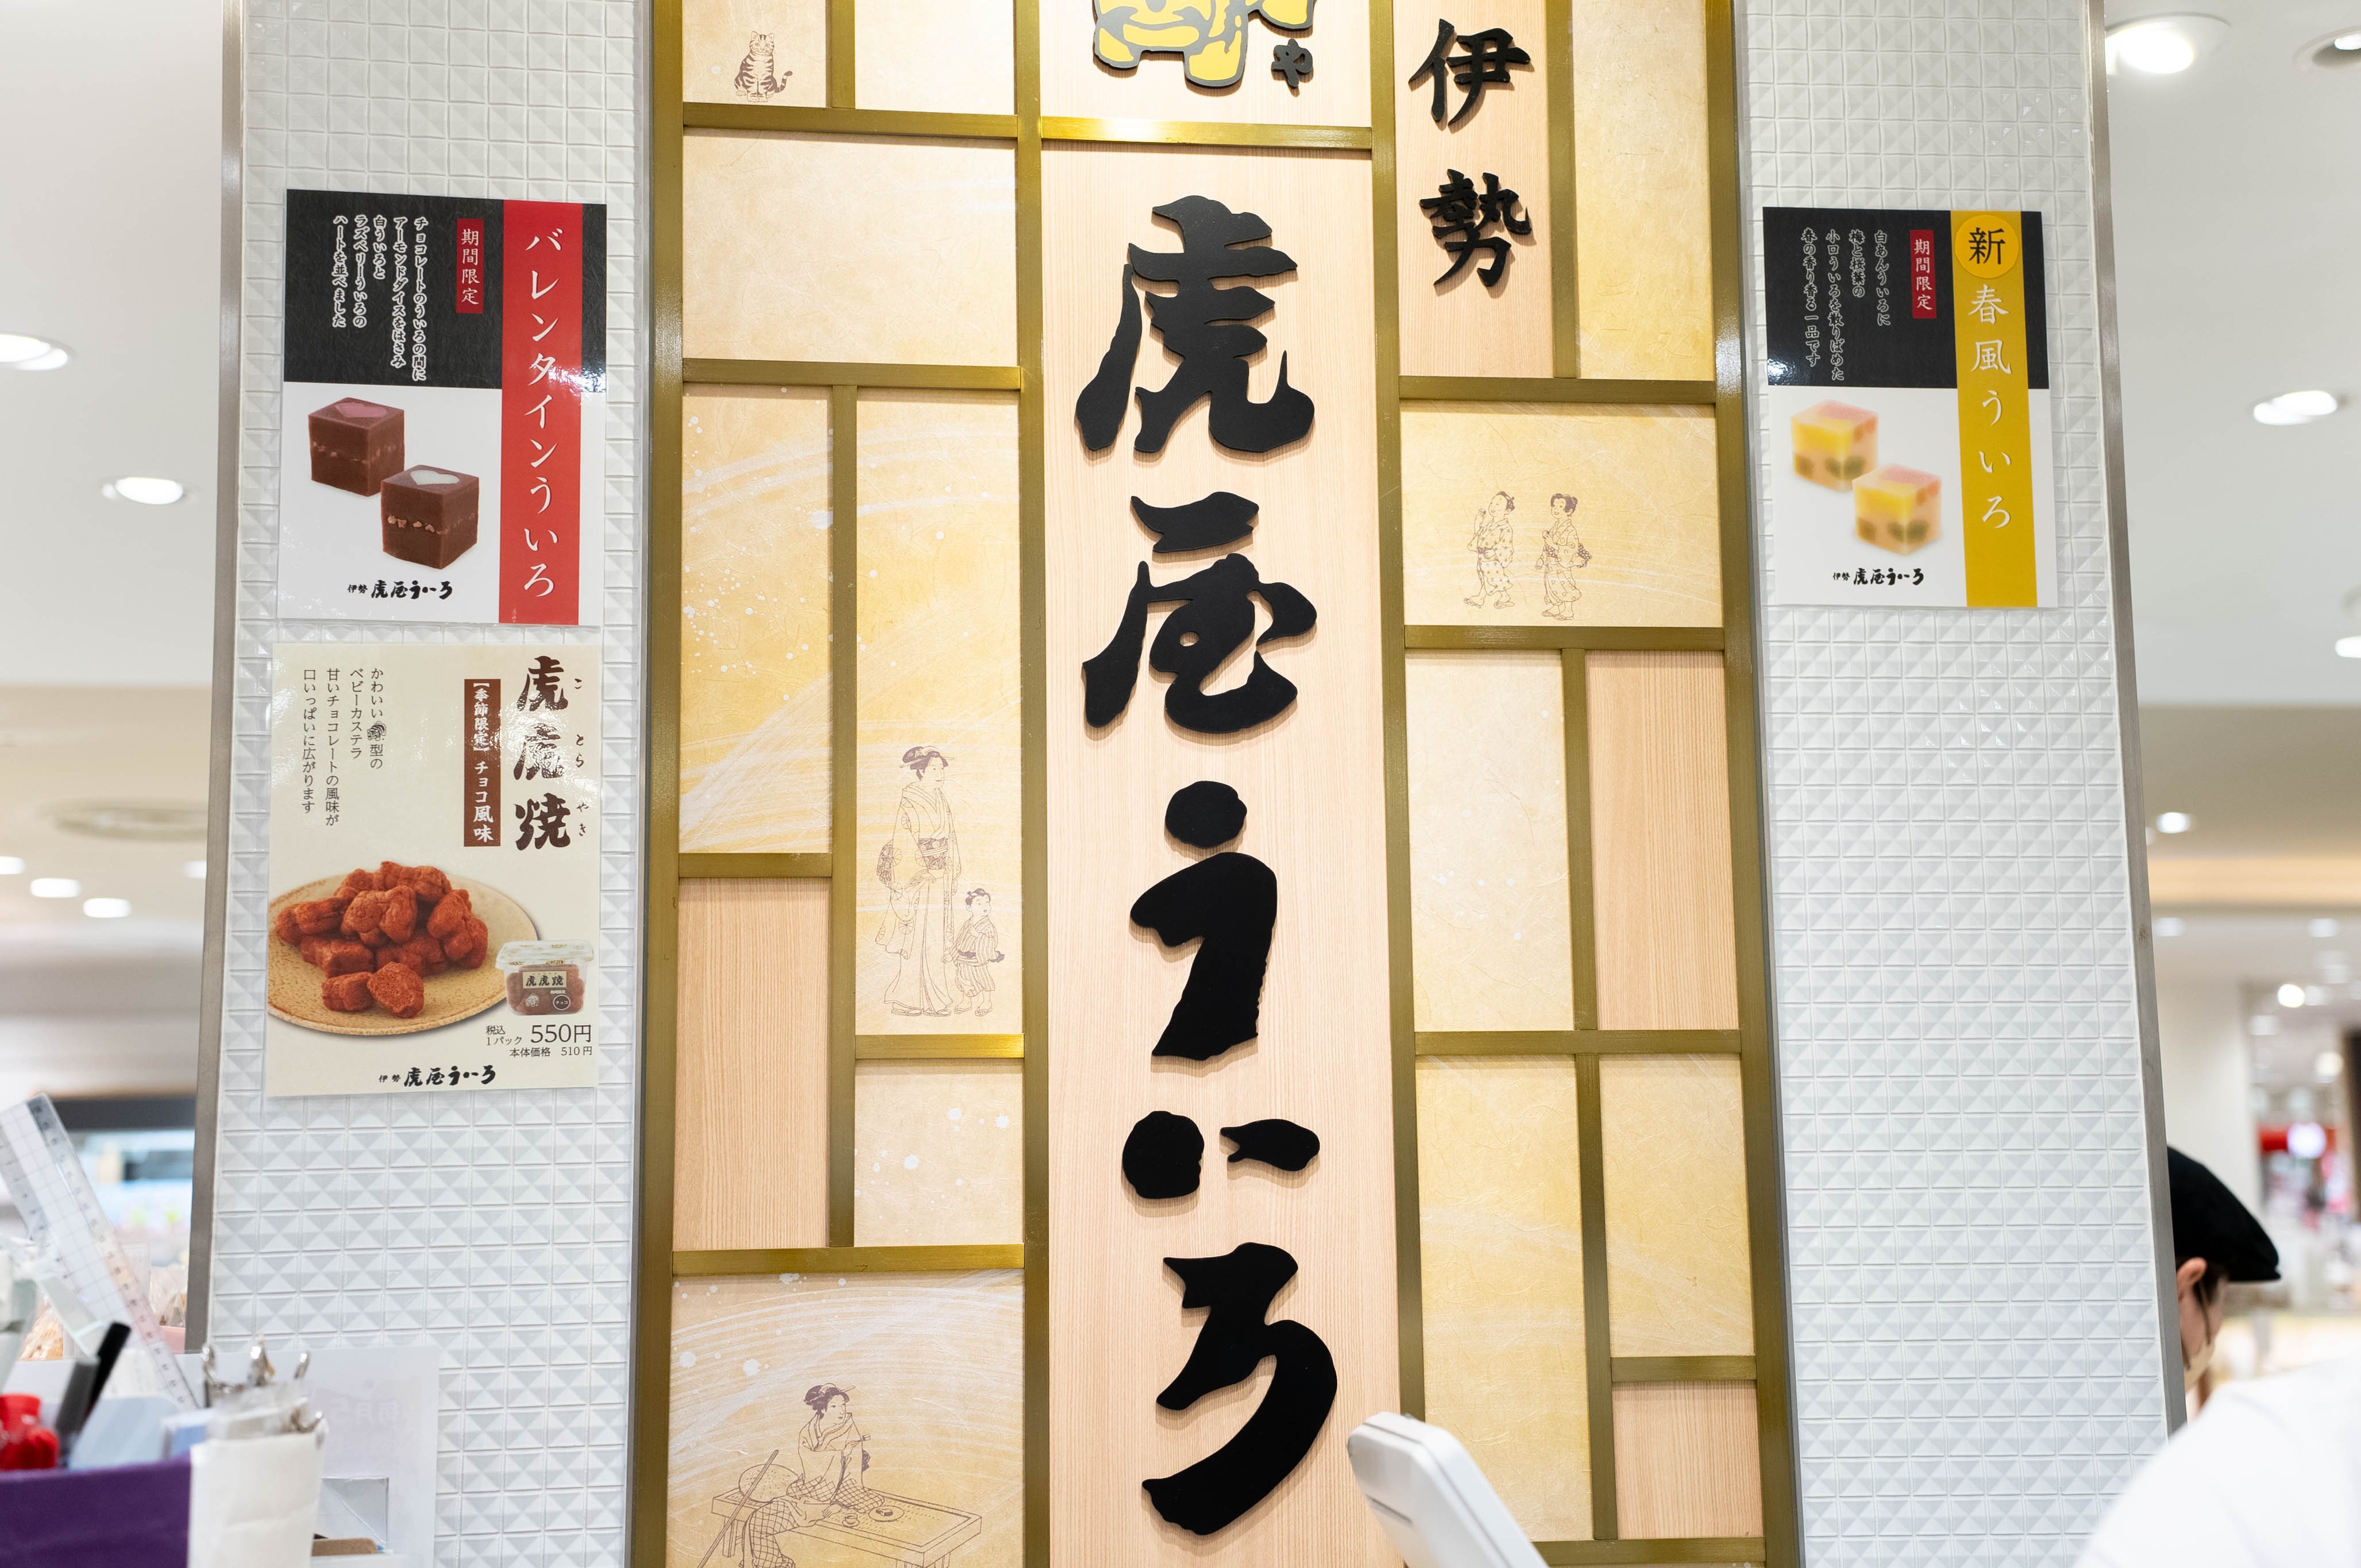 や
伊勢
虎屋ういろ
バレンタインういろ
期間限定
チョコレートのういろの間に
アーモンドダイスをはさみ
白ういろと
ラズベリーういろの
ハートを並べました
伊勢 虎屋ういろ
虎虎焼
こ とら やき
【季節限定】チョコ風味
かわいい
型の
ベビーカステラ
甘いチョコレートの風味が
口いっぱいに広がります
虎虎焼
チョコ
税込
1パック 550円
本体価格 510円
伊勢 虎屋ういろ
新
春風ういろ
期間限定
白あんういろに
梅と桜葉の
小口ういろを散りばめた
春の香り香る一品です
伊勢 虎屋ういろ